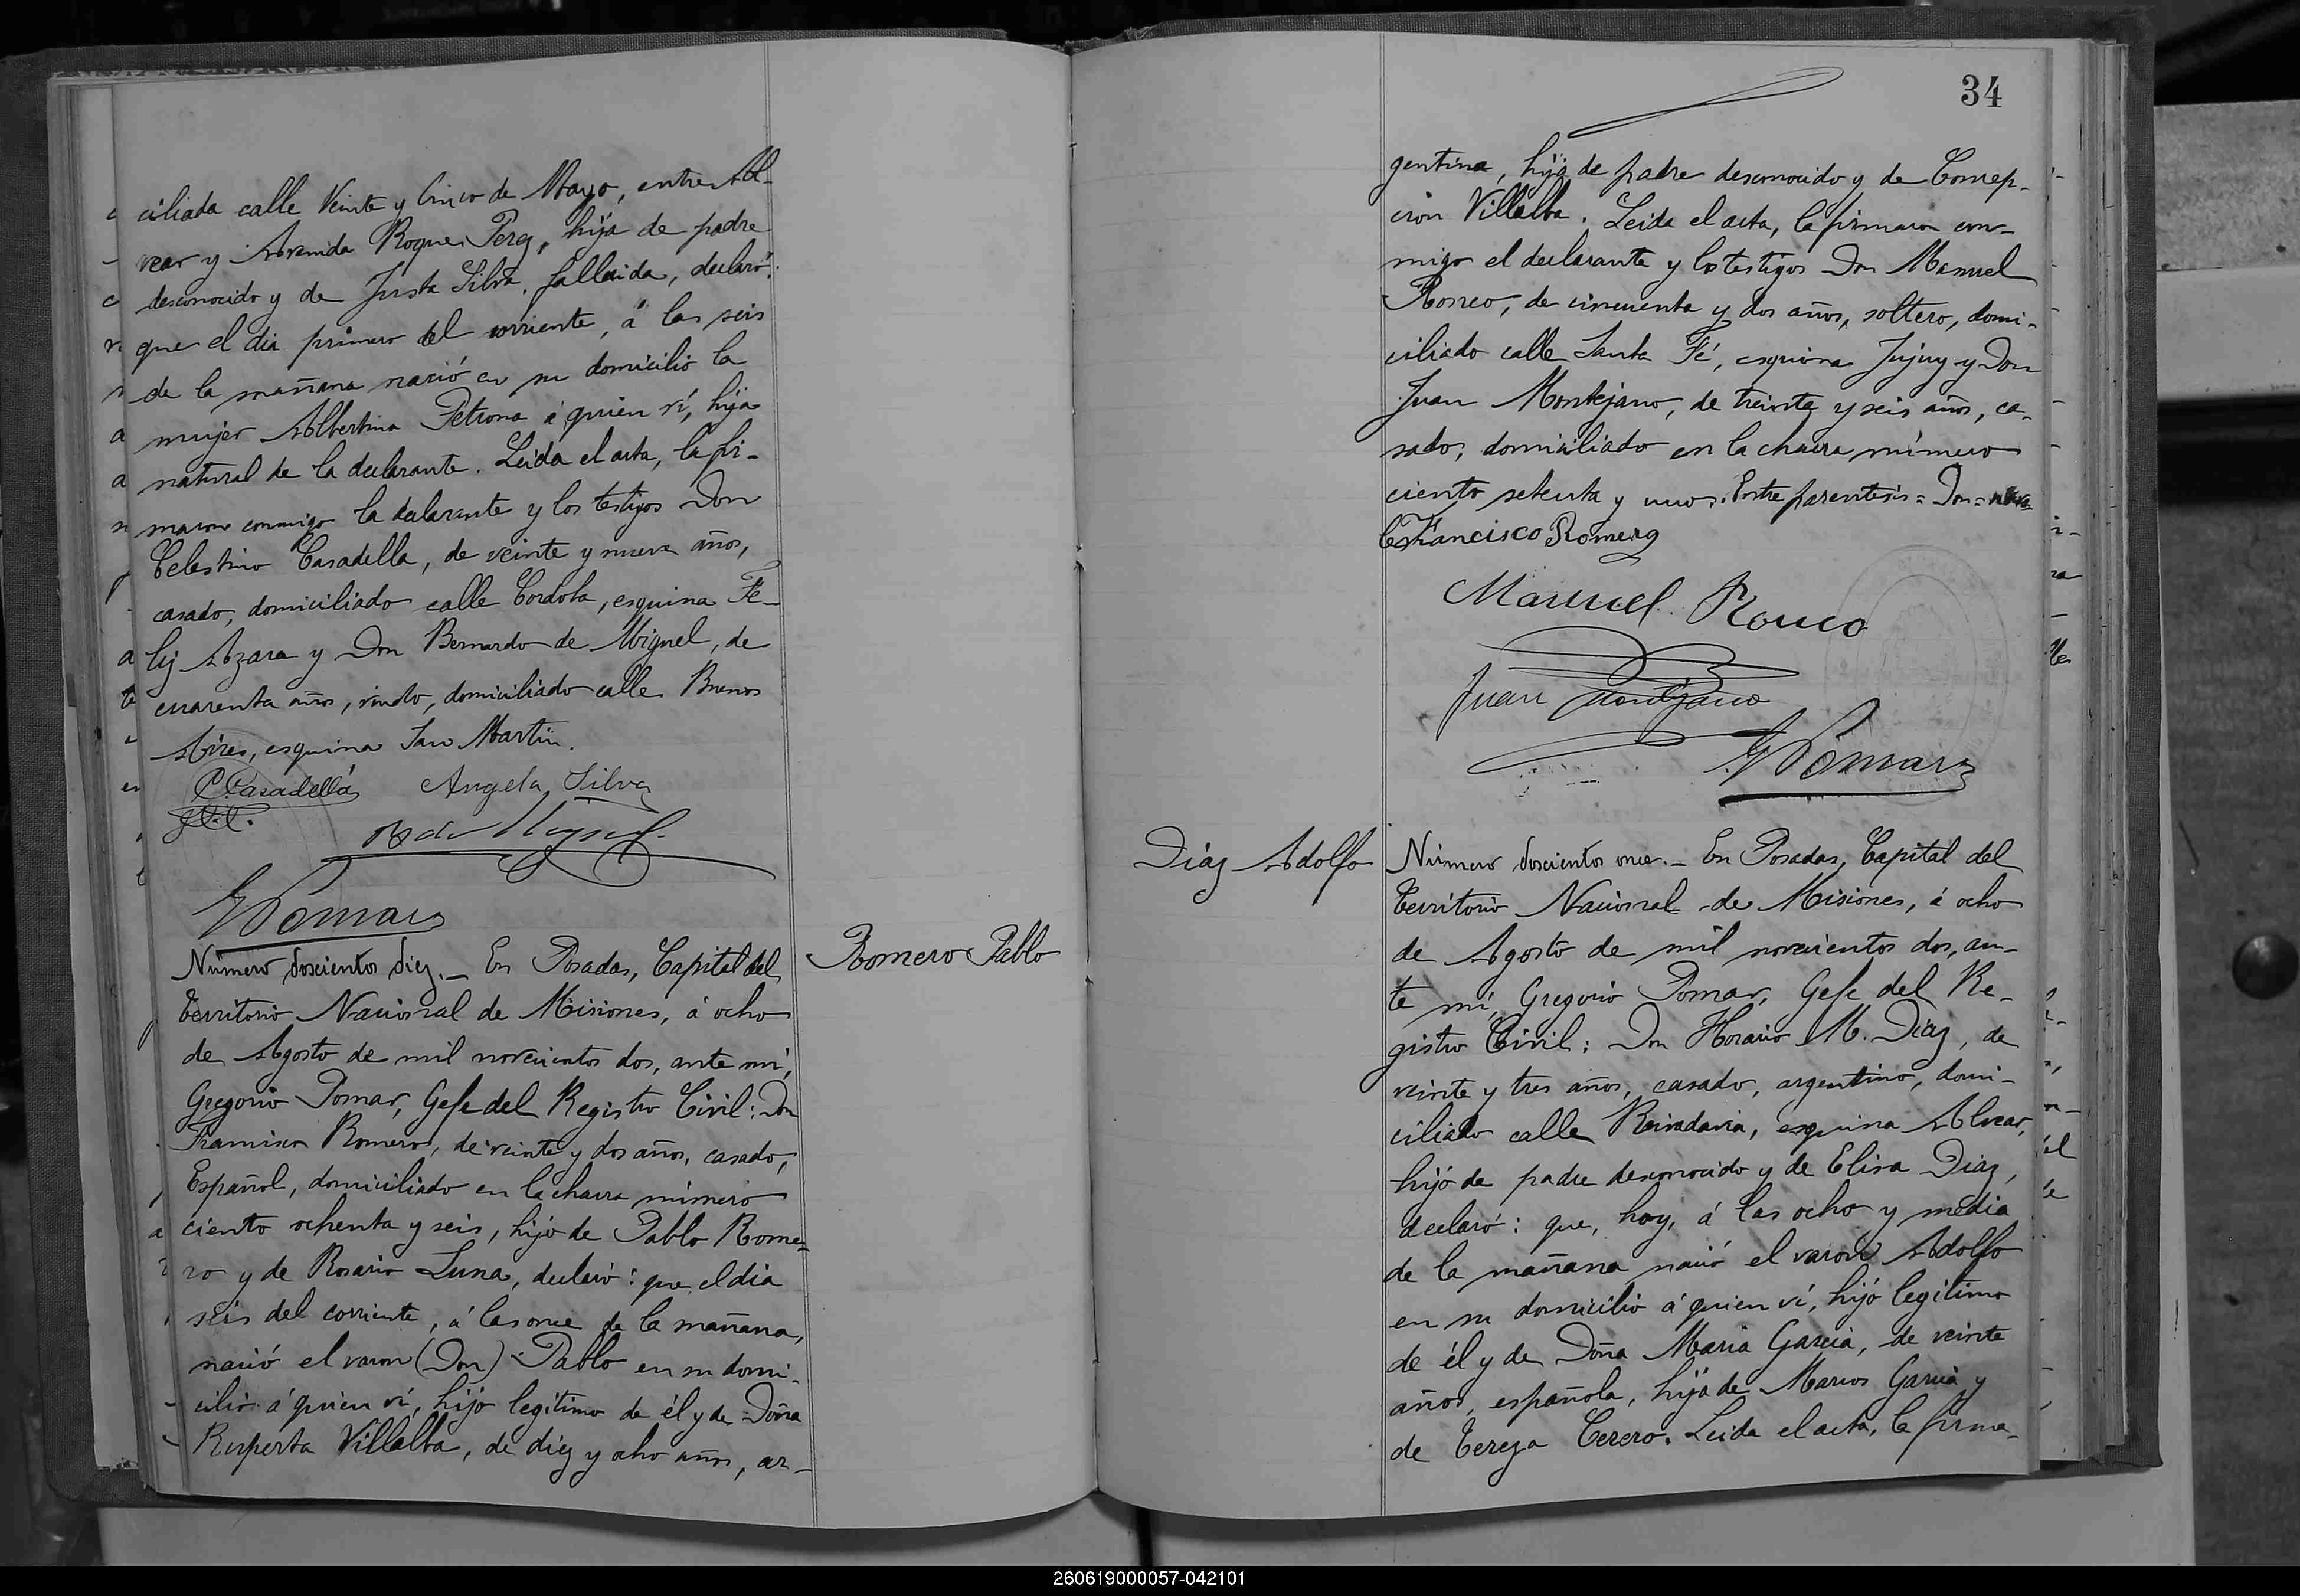 ciliada calle Veinte y Cinco de Mayo, entre Al-
vear y Avenida Roque Perez, hija de padre
desconocido y de Justa Silva, fallecida, declaró:
que el dia primero del corriente, á las seis
de la mañana nació en su domicilio la
mujer Albertina Petrona á quien ví, hija
natural de la declarante. Leida el acta, la fir-
maron conmigo la declarante y los testigos Don
Celestino Casadella, de veinte y nueve años,
casado, domiciliado calle Cordoba, esquina Fe-
liz Azara y Don Bernardo de Miguel, de
cuarenta años, viudo, domiciliado calle Buenos
Aires, esquina San Martin.
C. Casadellá Angela Silva
B de Miguel
G Pomar
Número doscientos diez. - En Posadas, Capital del
Territorio Nacional de Misiones, á ocho
de Agosto de mil novecientos dos, ante mí,
Gregorio Pomar, Gefe del Registro Civil: Don
Francisco Romero, de veinte y dos años, casado,
Español, domiciliado en la chacra número
ciento ochenta y seis, hijo de Pablo Rome-
ro y de Rosario Luna, declaró: que el dia
seis del corriente, á las once de la mañana,
nació el varon (Don) Pablo en su domi-
cilio á quien ví, hijo legítimo de él y de Doña
Ruperta Villalba, de diez y ocho años, ar-
Romero Pablo
34
gentina, hija de padre desconocido y de Concep-
cion Villalba. Leida el acta, la firmaron con-
migo el declarante y los testigos Don Manuel
Ronco, de cincuenta y dos años, soltero, domi-
ciliado calle Santa Fé, esquina Jujuy y Don
Juan Montejano, de treinta y seis años, ca-
sado, domiciliado en la chacra número
ciento setenta y uno. Entre parentesis = Don =
Francisco Romero
Manuel Ronco
Juan Montejano
G Pomar
Díaz Adolfo
Número doscientos once. - En Posadas, Capital del
Territorio Nacional de Misiones, á ocho
de Agosto de mil novecientos dos, an-
te mí, Gregorio Pomar, Gefe del Re-
gistro Civil: Don Horacio M. Diaz, de
veinte y tres años, casado, argentino, domi-
ciliado calle Rivadavia, esquina Alvear,
hijo de padre desconocido y de Elisa Diaz,
declaró: que, hoy, á las ocho y media
de la mañana nació el varon Adolfo
en su domicilio á quien ví, hijo legítimo
de él y de Doña Maria Garcia, de veinte
años, española, hija de Marcos Garcia y
de Tereza Cerero. Leida el acta, la firma-
260619000057-042101